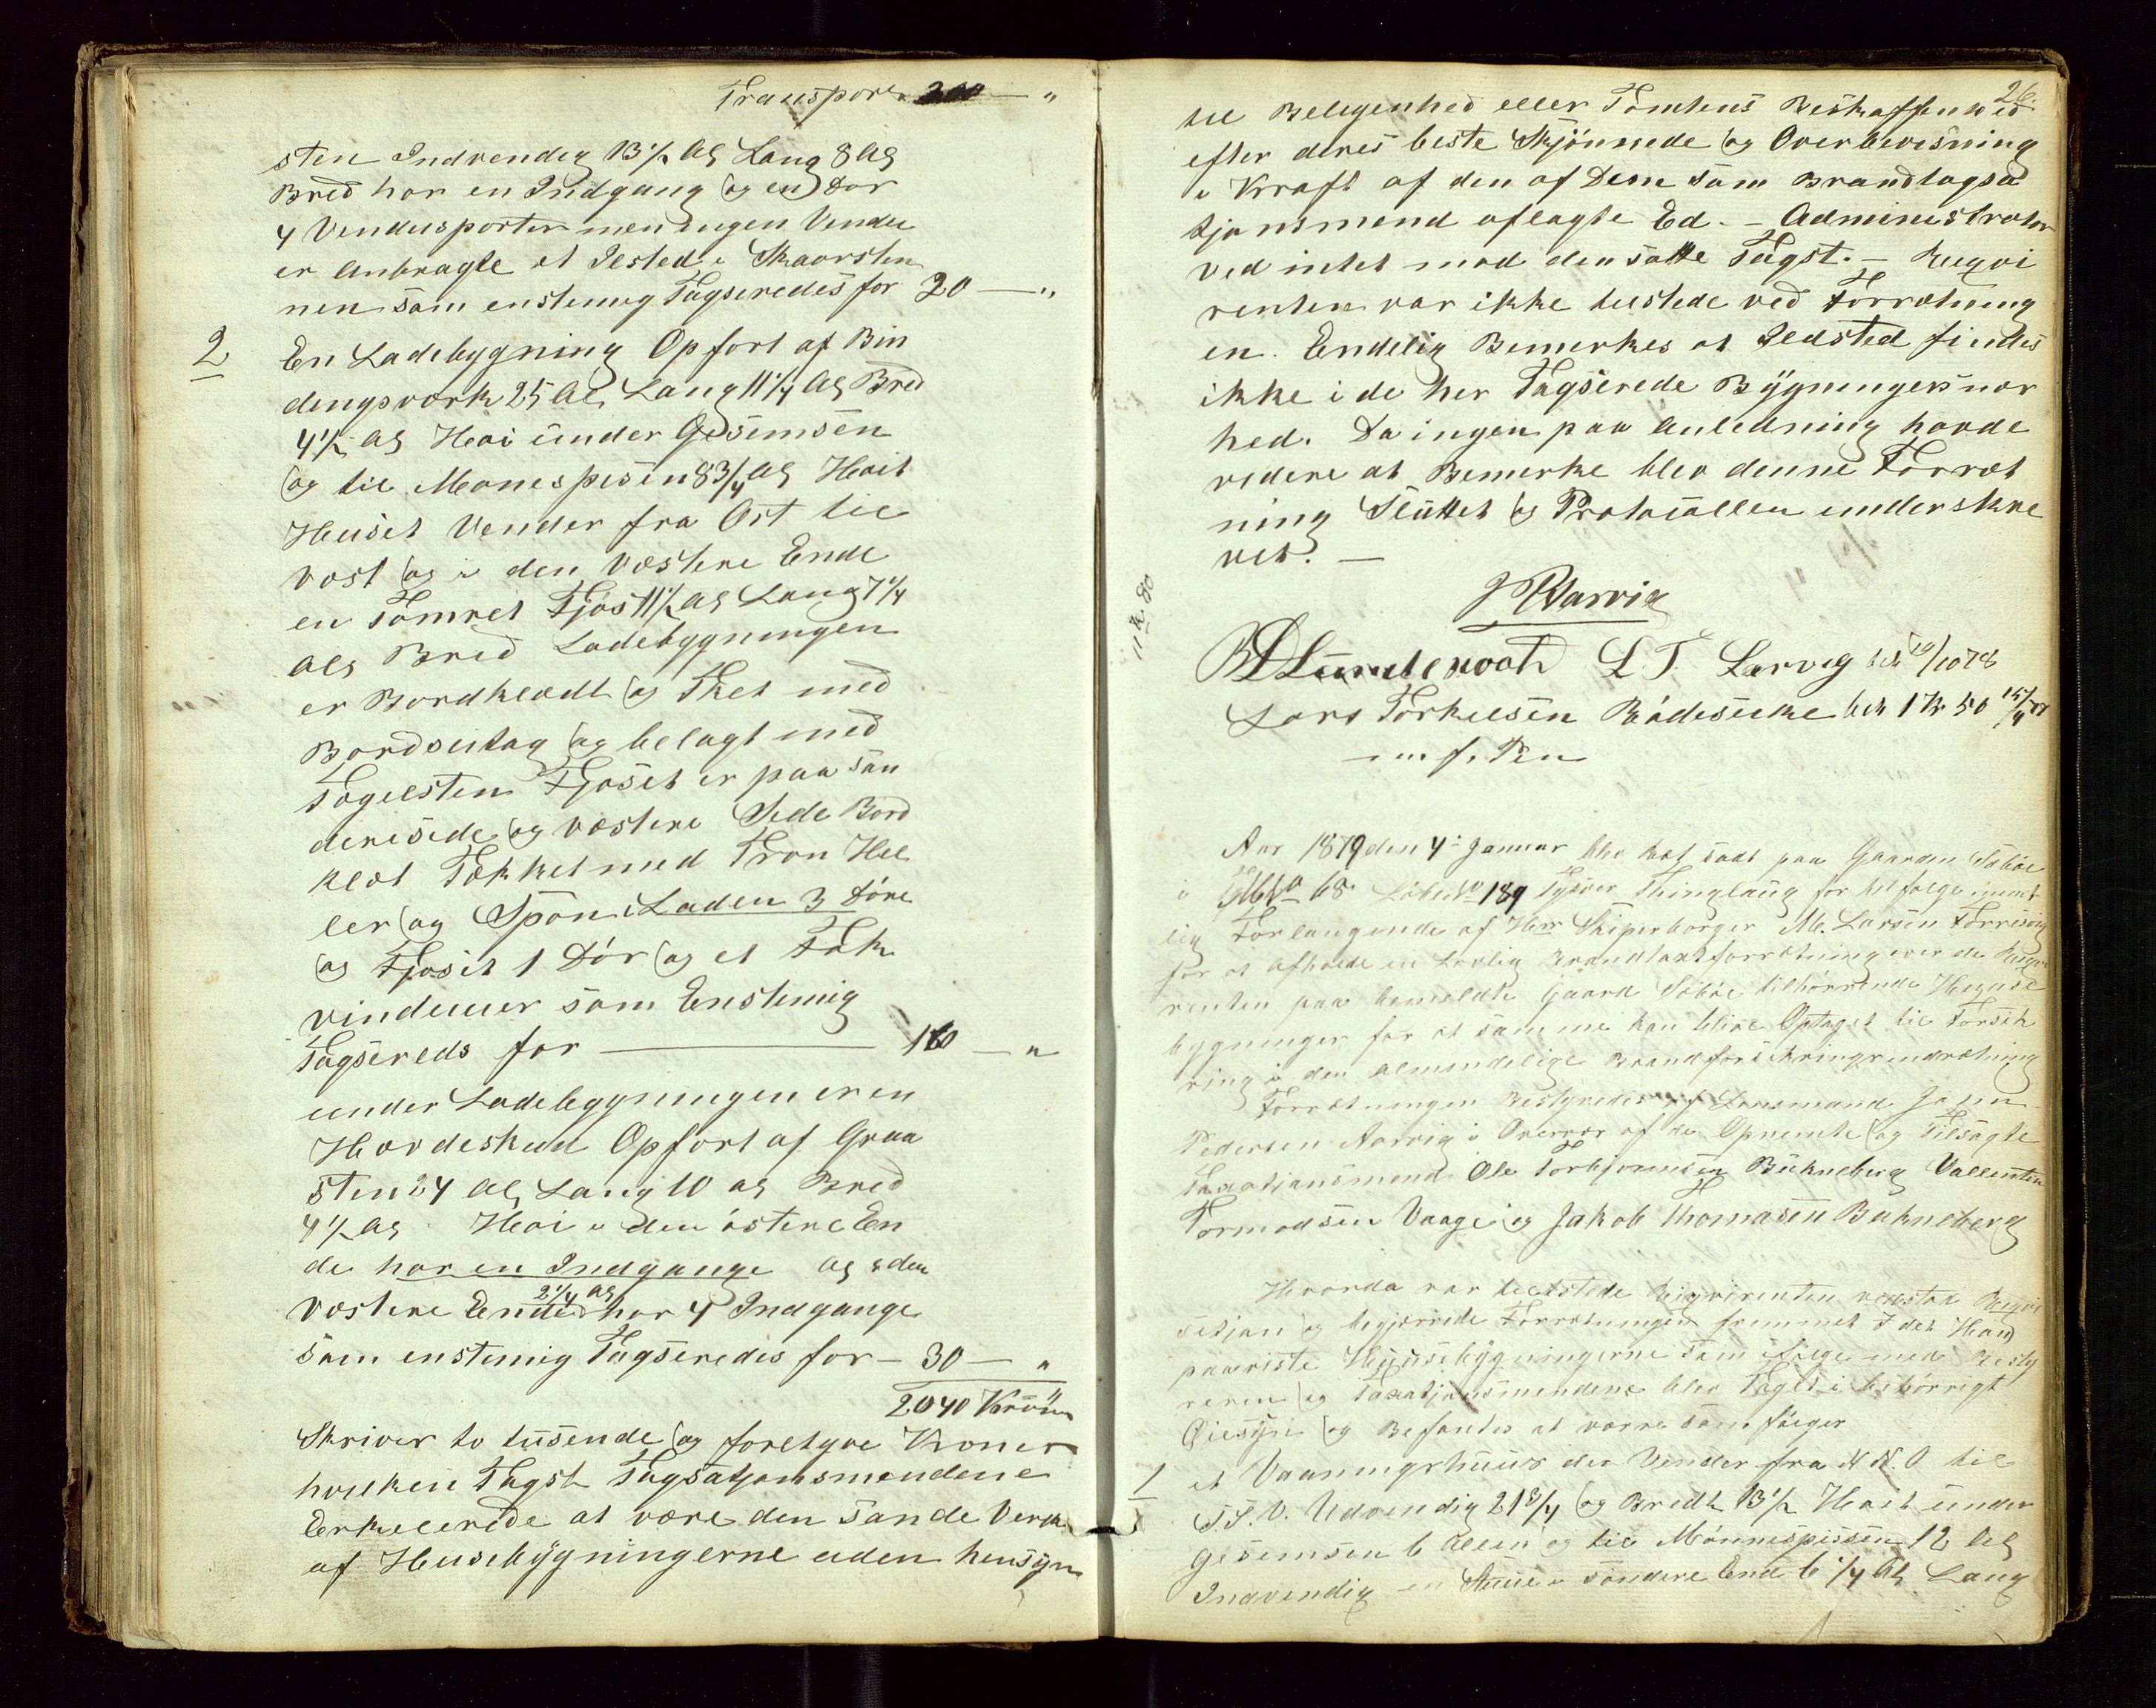 Transport 200 — "
sten Indvendig 13½ Al Lang 8 Al
Bred har en Indgang og en Dør
4 Vindusporter men ingen Vindu
er anbragte et Ilsted i Skaarsten
nen som enstemig Tagseredes for 20 — "
2 En Ladebygning Opfort af Bin
dingsværk 25 Al Lang 11¼ Al Bred
4½ Al Høi under Gesimsen
og til Mønespisen 8¾ Al Høit
Huset Vender fra Ost til
vest og i den vestere Ende
en Tømret Fjøs 11½ Al Lang 7¼
Al Bred Ladebygningen
er Bordkledt og Tket med
Bordsutag og belagt med
Tagelsten Fjøset er paa søn
dereside og vestere Side Bord
kledt Tækket med Tron Hel
ler og Spøn i Laden 3 Døre
og Fjøset 1 Dør og et Fak
vinduuer som Enstemig
Tagsereds for — 160 — "
under Ladebygningen er en
Hordeskun Opfort af Graa
sten 24 Al Lang 10 Al Bred
4½ Al Høi i den østere En
de har en Indgange og i den
vestere Ende 2¼ Al har 4 Indgange
som enstemig Tagseredes for — 30 — "
2040 Kroner
Skriver to tusende og føretyve Kroner
hvilken Tagst Tagsatjonsmendene
Erkelerede at være den sande Verdi
af Husebygningerne uden hensyn
26.
til Belegenhed eller Tomtens Beskaffenhed
efter deres beste Skjønnede og Overbevisning
i Kraft af den af Dem som Brandtagsa
tjonsmend aflagte Ed. — Administrator
ved intet mod den satte Tagst. — Requi
renten var ikke tilstede ved Forretning
en. Endelig Bemerkes at Ildsted findes
ikke i de her Tagserede Bygningers nær
hed. Da ingen paa anledning havde
videre at Bemerke blev denne Forret
ning Sluttet og Protocollen underskre
vet. —
J P Aarvig
L. T. Larvig
Lars Torkelsen Bødesicke bet 1 Kr 50
m. f. Pen
Aar 1879 den 4de Januar blev Ret sadt paa Gaarden Søbøe
i No 68 Løbe No 189 Tysver Thinglaug for til følge
lig Forlangende af Herr Skiperborger M. Larsen Førresvig
for at afholde en Lovlig Brandtaxt forretning over de Requi
renten paa bemeldte Gaard Søbøe tilhørrende Huuse
bygninger for at samme kan blive Optaget til Forsik
ring i den almindelige Brandforsikringsindretning
Forretningen Bestyredes af Lensmand John
Pedersen Aarvig i Overvær af de Opnemte og Tilsagte
Taxatjonsmend Ole Torbjørnsen Bukneberg Vallentin
Tormodsen Vaage og Jakob Thomasen Bukneberg
Hvorda var tilstede Reqvirenten Reqvi
setjon og begjærede Forretningen fremmet I det Han
paaviste Huusebygningerne som ifølge med Besty
reren og Taxatjonsmendene blev Taget i behørrigt
Øiesyn og Befantes at være som følger
1 et Vaaningshuus der Vender fra N.N.O til
S.S.V. Udvendig 21¾ og Bredt 13½ Høit under
Gesimsen 6 Allen og til Mønnespissen 12 Al
Indvendig en Stuue i søndere End 6¼ Al Lang